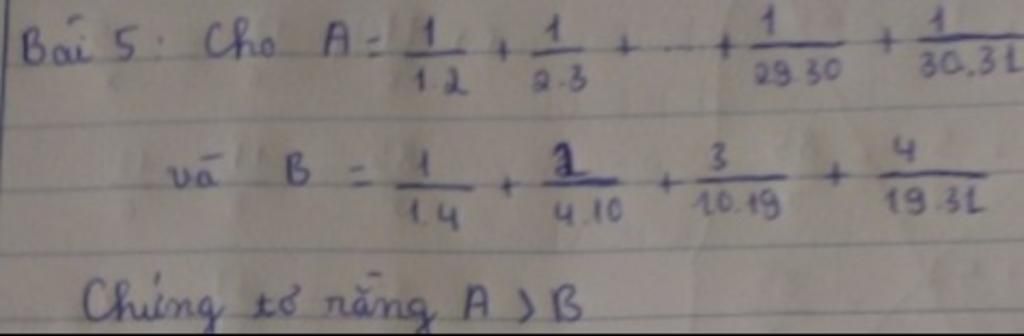 Bài 5: Cho A = 1/1.2 + 1/2.3 + ... + 1/29.30 + 1/30.31
và B = 1/1.4 + 2/4.10 + 3/10.19 + 4/19.31
Chứng tỏ rằng A > B